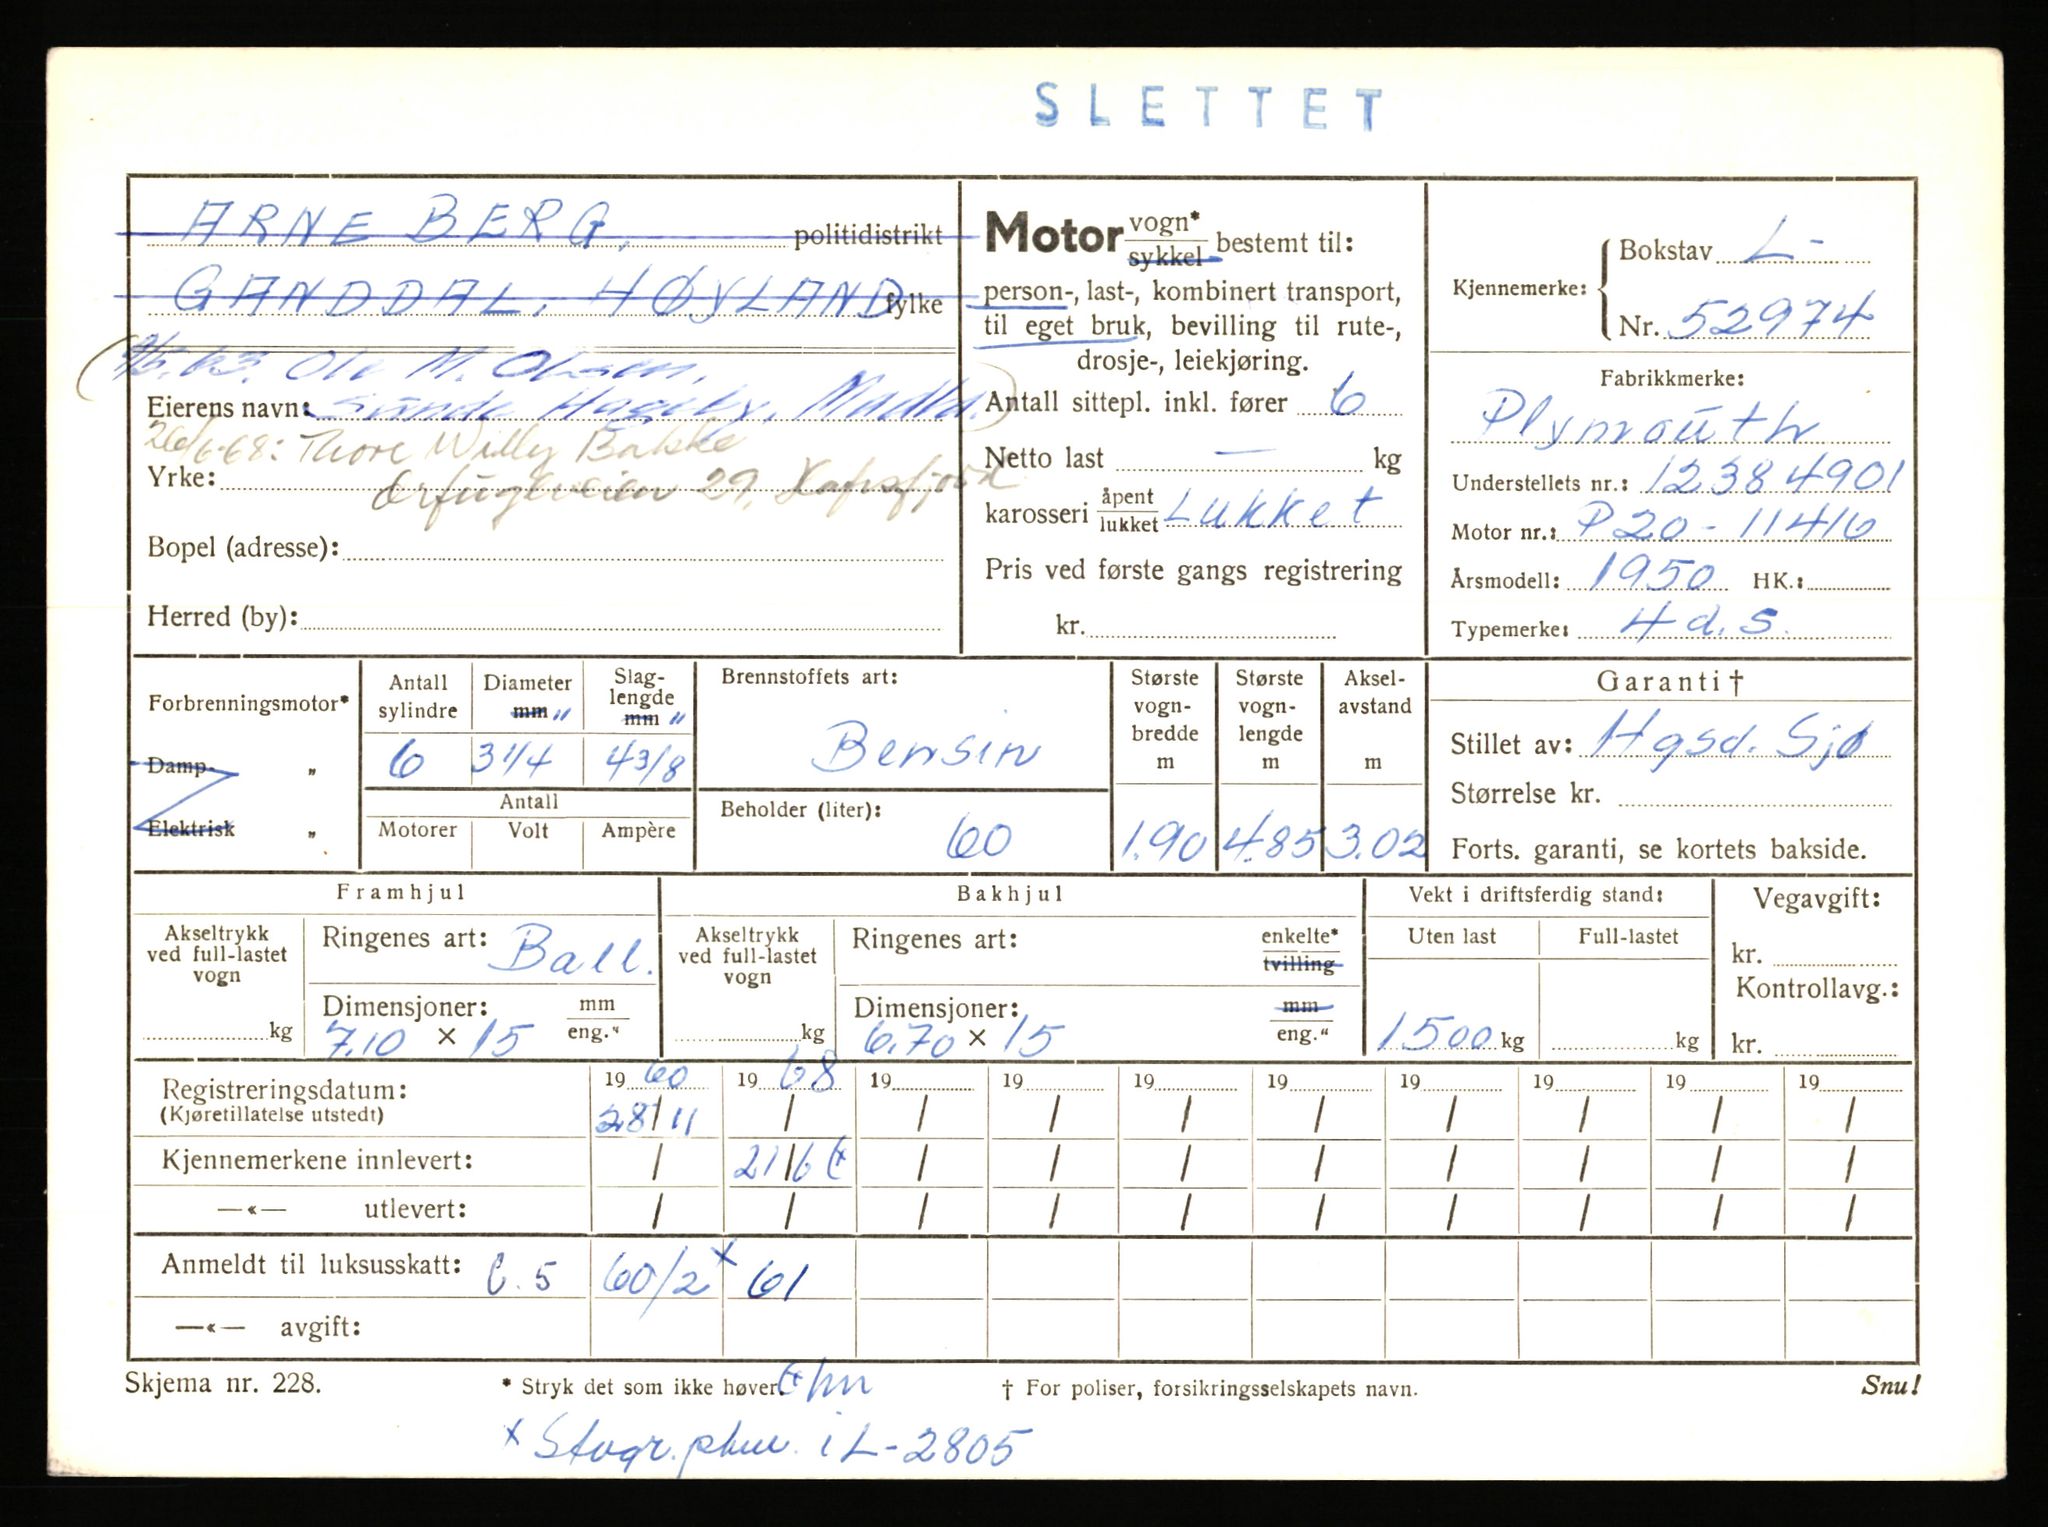 SLETTET
ARNE BERG, politidistrikt
GANDDAL, HØYLAND fylke
9/5.63. Ole M. Olsen,
Eierens navn: Sunde Hageby, Madla.
26/6-68: Thore Willy Bakke
Yrke: Ærfugleveien 29, Hafrsfjord
Bopel (adresse):
Herred (by):
Motor vogn* sykkel bestemt til:
person-, last-, kombinert transport,
til eget bruk, bevilling til rute-,
drosje-, leiekjøring.
Antall sittepl. inkl. fører 6
Netto last — kg
karosseri åpent lukket Lukket
Pris ved første gangs registrering
kr.
Kjennemerke: Bokstav L-
Nr. 52974
Fabrikkmerke:
Plymouth
Understellets nr.: 12384901
Motor nr.: P20-11416
Årsmodell: 1950 HK.:
Typemerke: 4 d. s.
Forbrenningsmotor*
Damp- „
Elektrisk „
Antall sylindre Diameter mm " Slag-lengde mm "
6 3 1/4 4 3/8
Antall
Motorer Volt Ampère
Brennstoffets art:
Bensin
Beholder (liter):
60
Største vogn-bredde m
1.90
Største vogn-lengde m
4.85
Aksel-avstand m
3.02
Garanti †
Stillet av: Hgsd. Sjø
Størrelse kr.
Forts. garanti, se kortets bakside.
Framhjul
Akseltrykk ved full-lastet vogn
kg
Ringenes art: Ball.
Dimensjoner: mm eng."
7.10 × 15
Bakhjul
Akseltrykk ved full-lastet vogn
kg
Ringenes art: enkelte* tvilling
Dimensjoner: mm eng."
6.70 × 15
Vekt i driftsferdig stand:
Uten last Full-lastet
1500 kg kg
Vegavgift:
kr.
Kontrollavg.:
kr.
Registreringsdatum: 19 60 19 68 19 19 19 19 19 19 19 19
(Kjøretillatelse utstedt) 28/11 / / / / / / / / /
Kjennemerkene innlevert: / 21/6 / / / / / / / /
—«— utlevert: / / / / / / / / / /
Anmeldt til luksusskatt: C. 5 60/2 x 61
—«— avgift:
Skjema nr. 228. * Stryk det som ikke høver. † For poliser, forsikringsselskapets navn. Snu!
x i L-2805